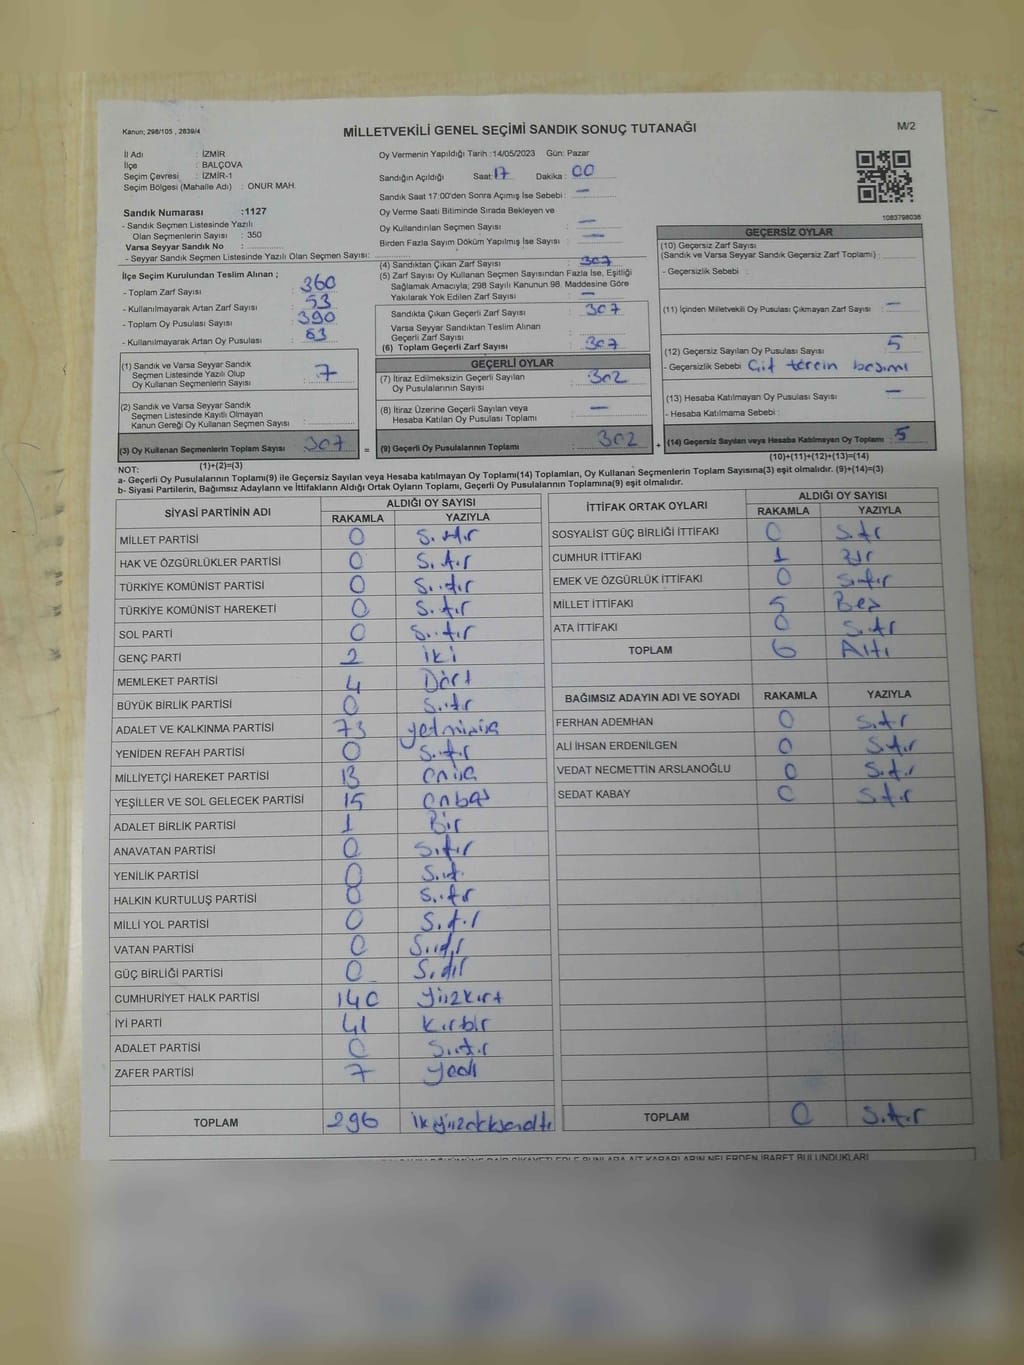 Kanun: 298/105 , 2839/4
MİLLETVEKİLİ GENEL SEÇİMİ SANDIK SONUÇ TUTANAĞI
M/2
İl Adı : İZMİR
İlçe : BALÇOVA
Seçim Çevresi : İZMİR-1
Seçim Bölgesi (Mahalle Adı) : ONUR MAH.
Sandık Numarası :1127
- Sandık Seçmen Listesinde Yazılı
Olan Seçmenlerin Sayısı : 350
Varsa Seyyar Sandık No :
- Seyyar Sandık Seçmen Listesinde Yazılı Olan Seçmen Sayısı:
Oy Vermenin Yapıldığı Tarih :14/05/2023 Gün: Pazar
Sandığın Açıldığı Saat: 17 Dakika : 00
Sandık Saat 17:00'den Sonra Açımış İse Sebebi : —
Oy Verme Saati Bitiminde Sırada Bekleyen ve
Oy Kullandırılan Seçmen Sayısı : —
Birden Fazla Sayım Döküm Yapılmış İse Sayısı : —
1083798036
İlçe Seçim Kurulundan Teslim Alınan ;
- Toplam Zarf Sayısı : 360
- Kullanılmayarak Artan Zarf Sayısı : 53
- Toplam Oy Pusulası Sayısı : 390
- Kullanılmayarak Artan Oy Pusulası : 63
(1) Sandık ve Varsa Seyyar Sandık
Seçmen Listesinde Yazılı Olup
Oy Kullanan Seçmenlerin Sayısı : 7
(2) Sandık ve Varsa Seyyar Sandık
Seçmen Listesinde Kayıtlı Olmayan
Kanun Gereği Oy Kullanan Seçmen Sayısı :
(3) Oy Kullanan Seçmenlerin Toplam Sayısı : 307
(1)+(2)=(3)
(4) Sandıktan Çıkan Zarf Sayısı : 307
(5) Zarf Sayısı Oy Kullanan Seçmen Sayısından Fazla İse, Eşitliği
Sağlamak Amacıyla; 298 Sayılı Kanunun 98. Maddesine Göre
Yakılarak Yok Edilen Zarf Sayısı : —
Sandıkta Çıkan Geçerli Zarf Sayısı : 307
Varsa Seyyar Sandıktan Teslim Alınan
Geçerli Zarf Sayısı :
(6) Toplam Geçerli Zarf Sayısı : 307
GEÇERLİ OYLAR
(7) İtiraz Edilmeksizin Geçerli Sayılan
Oy Pusulalarının Sayısı : 302
(8) İtiraz Üzerine Geçerli Sayılan veya
Hesaba Katılan Oy Pusulaları Toplamı : —
= (9) Geçerli Oy Pusulalarının Toplamı : 302
GEÇERSİZ OYLAR
(10) Geçersiz Zarf Sayısı
(Sandık ve Varsa Seyyar Sandık Geçersiz Zarf Toplamı) :
- Geçersizlik Sebebi :
(11) İçinden Milletvekili Oy Pusulası Çıkmayan Zarf Sayısı : —
(12) Geçersiz Sayılan Oy Pusulası Sayısı : 5
- Geçersizlik Sebebi
(13) Hesaba Katılmayan Oy Pusulası Sayısı : —
- Hesaba Katılmama Sebebi :
+ (14) Geçersiz Sayılan veya Hesaba Katılmayan Oy Toplamı : 5
(10)+(11)+(12)+(13)=(14)
NOT:
a- Geçerli Oy Pusulalarının Toplamı(9) ile Geçersiz Sayılan veya Hesaba katılmayan Oy Toplamı(14) Toplamları, Oy Kullanan Seçmenlerin Toplam Sayısına(3) eşit olmalıdır. (9)+(14)=(3)
b- Siyasi Partilerin, Bağımsız Adayların ve İttifakların Aldığı Ortak Oyların Toplamı, Geçerli Oy Pusulalarının Toplamına(9) eşit olmalıdır.
SİYASİ PARTİNİN ADI ALDIĞI OY SAYISI
RAKAMLA YAZIYLA
MİLLET PARTİSİ 0 Sıfır
HAK VE ÖZGÜRLÜKLER PARTİSİ 0 Sıfır
TÜRKİYE KOMÜNİST PARTİSİ 0 Sıfır
TÜRKİYE KOMÜNİST HAREKETİ 0 Sıfır
SOL PARTİ 0 Sıfır
GENÇ PARTİ 2 iki
MEMLEKET PARTİSİ 4 Dört
BÜYÜK BİRLİK PARTİSİ 0 Sıfır
ADALET VE KALKINMA PARTİSİ 73 yetmişüç
YENİDEN REFAH PARTİSİ 0 Sıfır
MİLLİYETÇİ HAREKET PARTİSİ 13 onüç
YEŞİLLER VE SOL GELECEK PARTİSİ 15 onbeş
ADALET BİRLİK PARTİSİ 1 Bir
ANAVATAN PARTİSİ 0 Sıfır
YENİLİK PARTİSİ 0 Sıfır
HALKIN KURTULUŞ PARTİSİ 0 Sıfır
MİLLİ YOL PARTİSİ 0 Sıfır
VATAN PARTİSİ 0 Sıfır
GÜÇ BİRLİĞİ PARTİSİ 0 Sıfır
CUMHURİYET HALK PARTİSİ 140 yüzkırk
İYİ PARTİ 41 kırbir
ADALET PARTİSİ 0 Sıfır
ZAFER PARTİSİ 7 yedi
TOPLAM 296
İTTİFAK ORTAK OYLARI ALDIĞI OY SAYISI
RAKAMLA YAZIYLA
SOSYALİST GÜÇ BİRLİĞİ İTTİFAKI 0 Sıfır
CUMHUR İTTİFAKI 1 Bir
EMEK VE ÖZGÜRLÜK İTTİFAKI 0 Sıfır
MİLLET İTTİFAKI 5 Beş
ATA İTTİFAKI 0 Sıfır
TOPLAM 6 Altı
BAĞIMSIZ ADAYIN ADI VE SOYADI RAKAMLA YAZIYLA
FERHAN ADEMHAN 0 Sıfır
ALİ İHSAN ERDENİLGEN 0 Sıfır
VEDAT NECMETTİN ARSLANOĞLU 0 Sıfır
SEDAT KABAY 0 Sıfır
TOPLAM 0 Sıfır